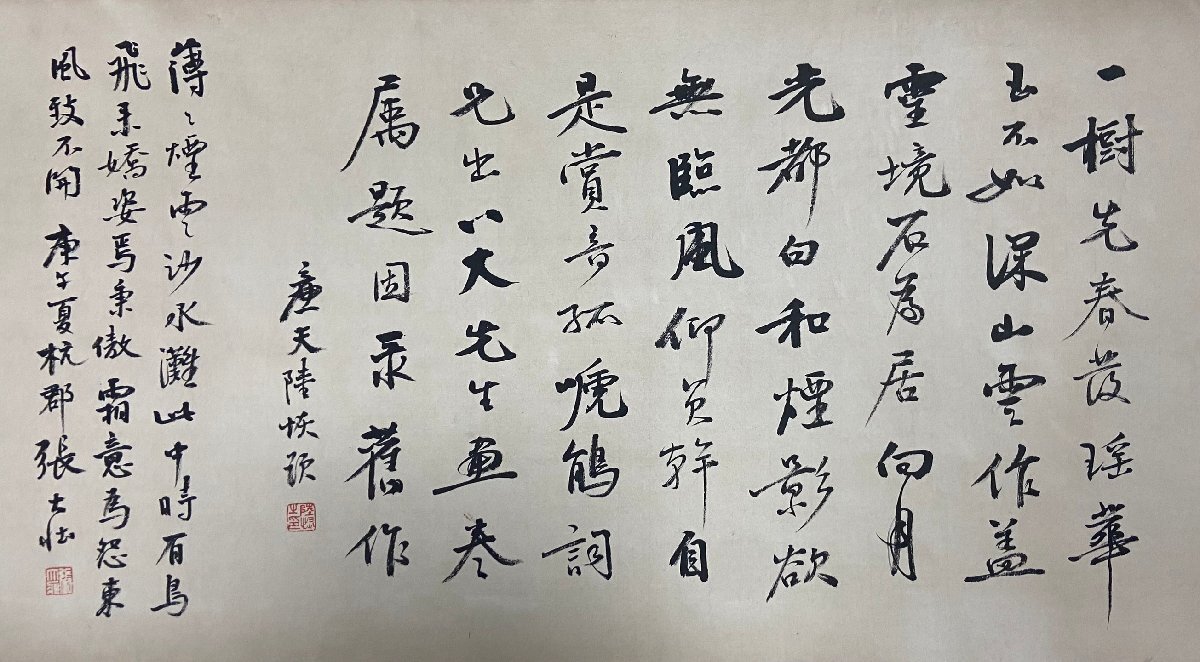 一樹先春發瑤華
玉不如深山雲作蓋
靈境石為居向月
光都白和煙影欲
無臨風仰貞幹自
是賞音孤嗁詞
兄出以大先生畫卷
属題因录舊作
廉夫陸恢
薄〻煙雲沙水灘此中時有鳥
飛来嬌姿焉秉傲霜意為怨東
風致不開 庚午夏杭郡張大壯